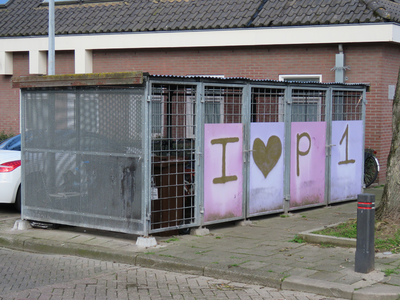 I ♥ P 1